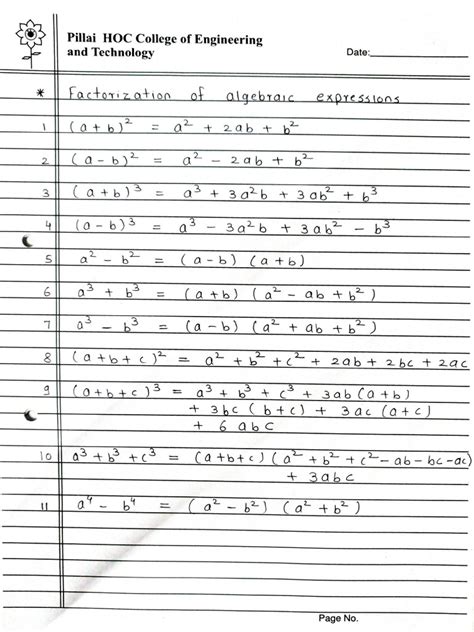 Pillai HOC College of Engineering
and Technology
Date:
* Factorization of algebraic expressions
1 (a+b)² = a² + 2ab + b²
2 (a-b)² = a² - 2ab + b²
3 (a+b)³ = a³ + 3a²b + 3ab² + b³
4 (a-b)³ = a³ - 3a²b + 3ab² - b³
5 a² - b² = (a-b) (a+b)
6 a³ + b³ = (a+b) (a² - ab + b²)
7 a³ - b³ = (a-b) (a² + ab + b²)
8 (a+b+c)² = a² + b² + c² + 2ab + 2bc + 2ac
9 (a+b+c)³ = a³ + b³ + c³ + 3ab (a+b)
+ 3bc (b+c) + 3ac (a+c)
+ 6 abc
10 a³ + b³ + c³ = (a+b+c) (a² + b² + c² - ab - bc - ac)
+ 3abc
11 a⁴ - b⁴ = (a² - b²) (a² + b²)
Page No.